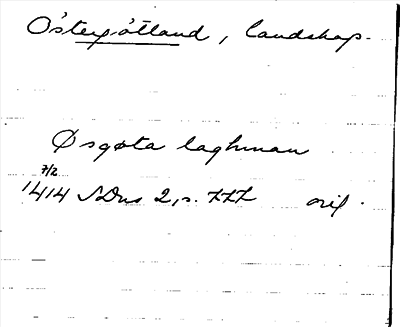 Östergötland, landskap.
Øsgøta laghman
7/2
1414 SDns 2, s. 777 orig.